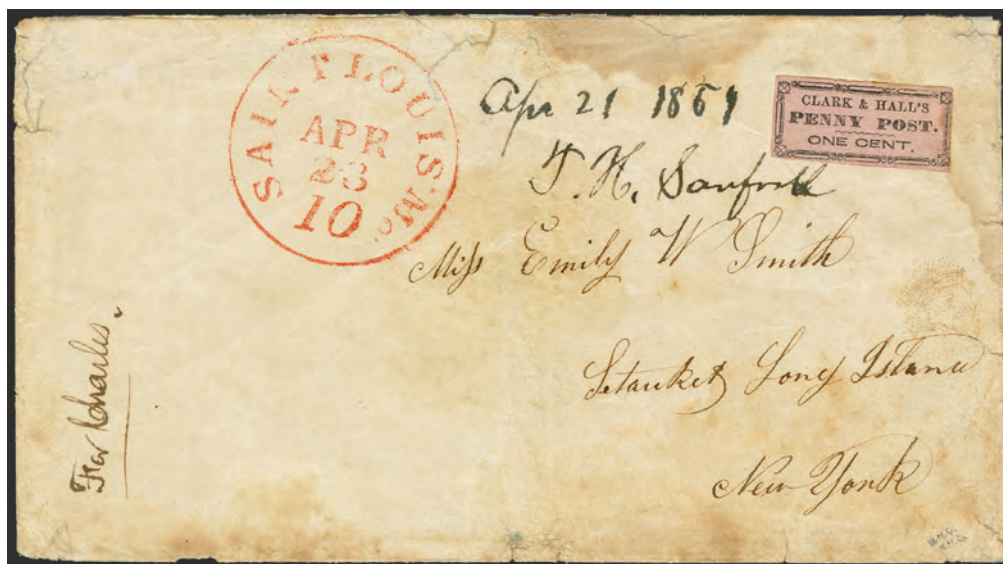 SAINT LOUIS Mo.
APR
23
10
Apr 21 1851
CLARK & HALL'S
PENNY POST.
ONE CENT.
T. H.
Miss Emily W Smith
Setauket Long Island
New York
Charles